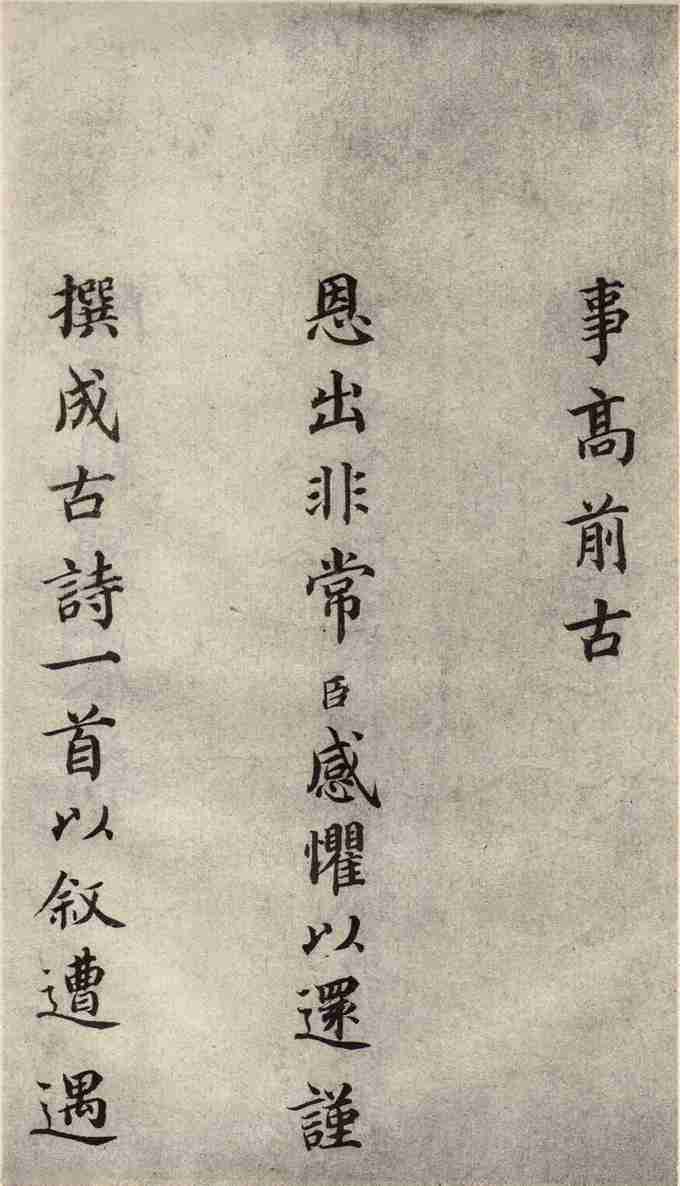 事高前古
恩出非常臣感懼以還謹
撰成古詩一首以叙遭遇